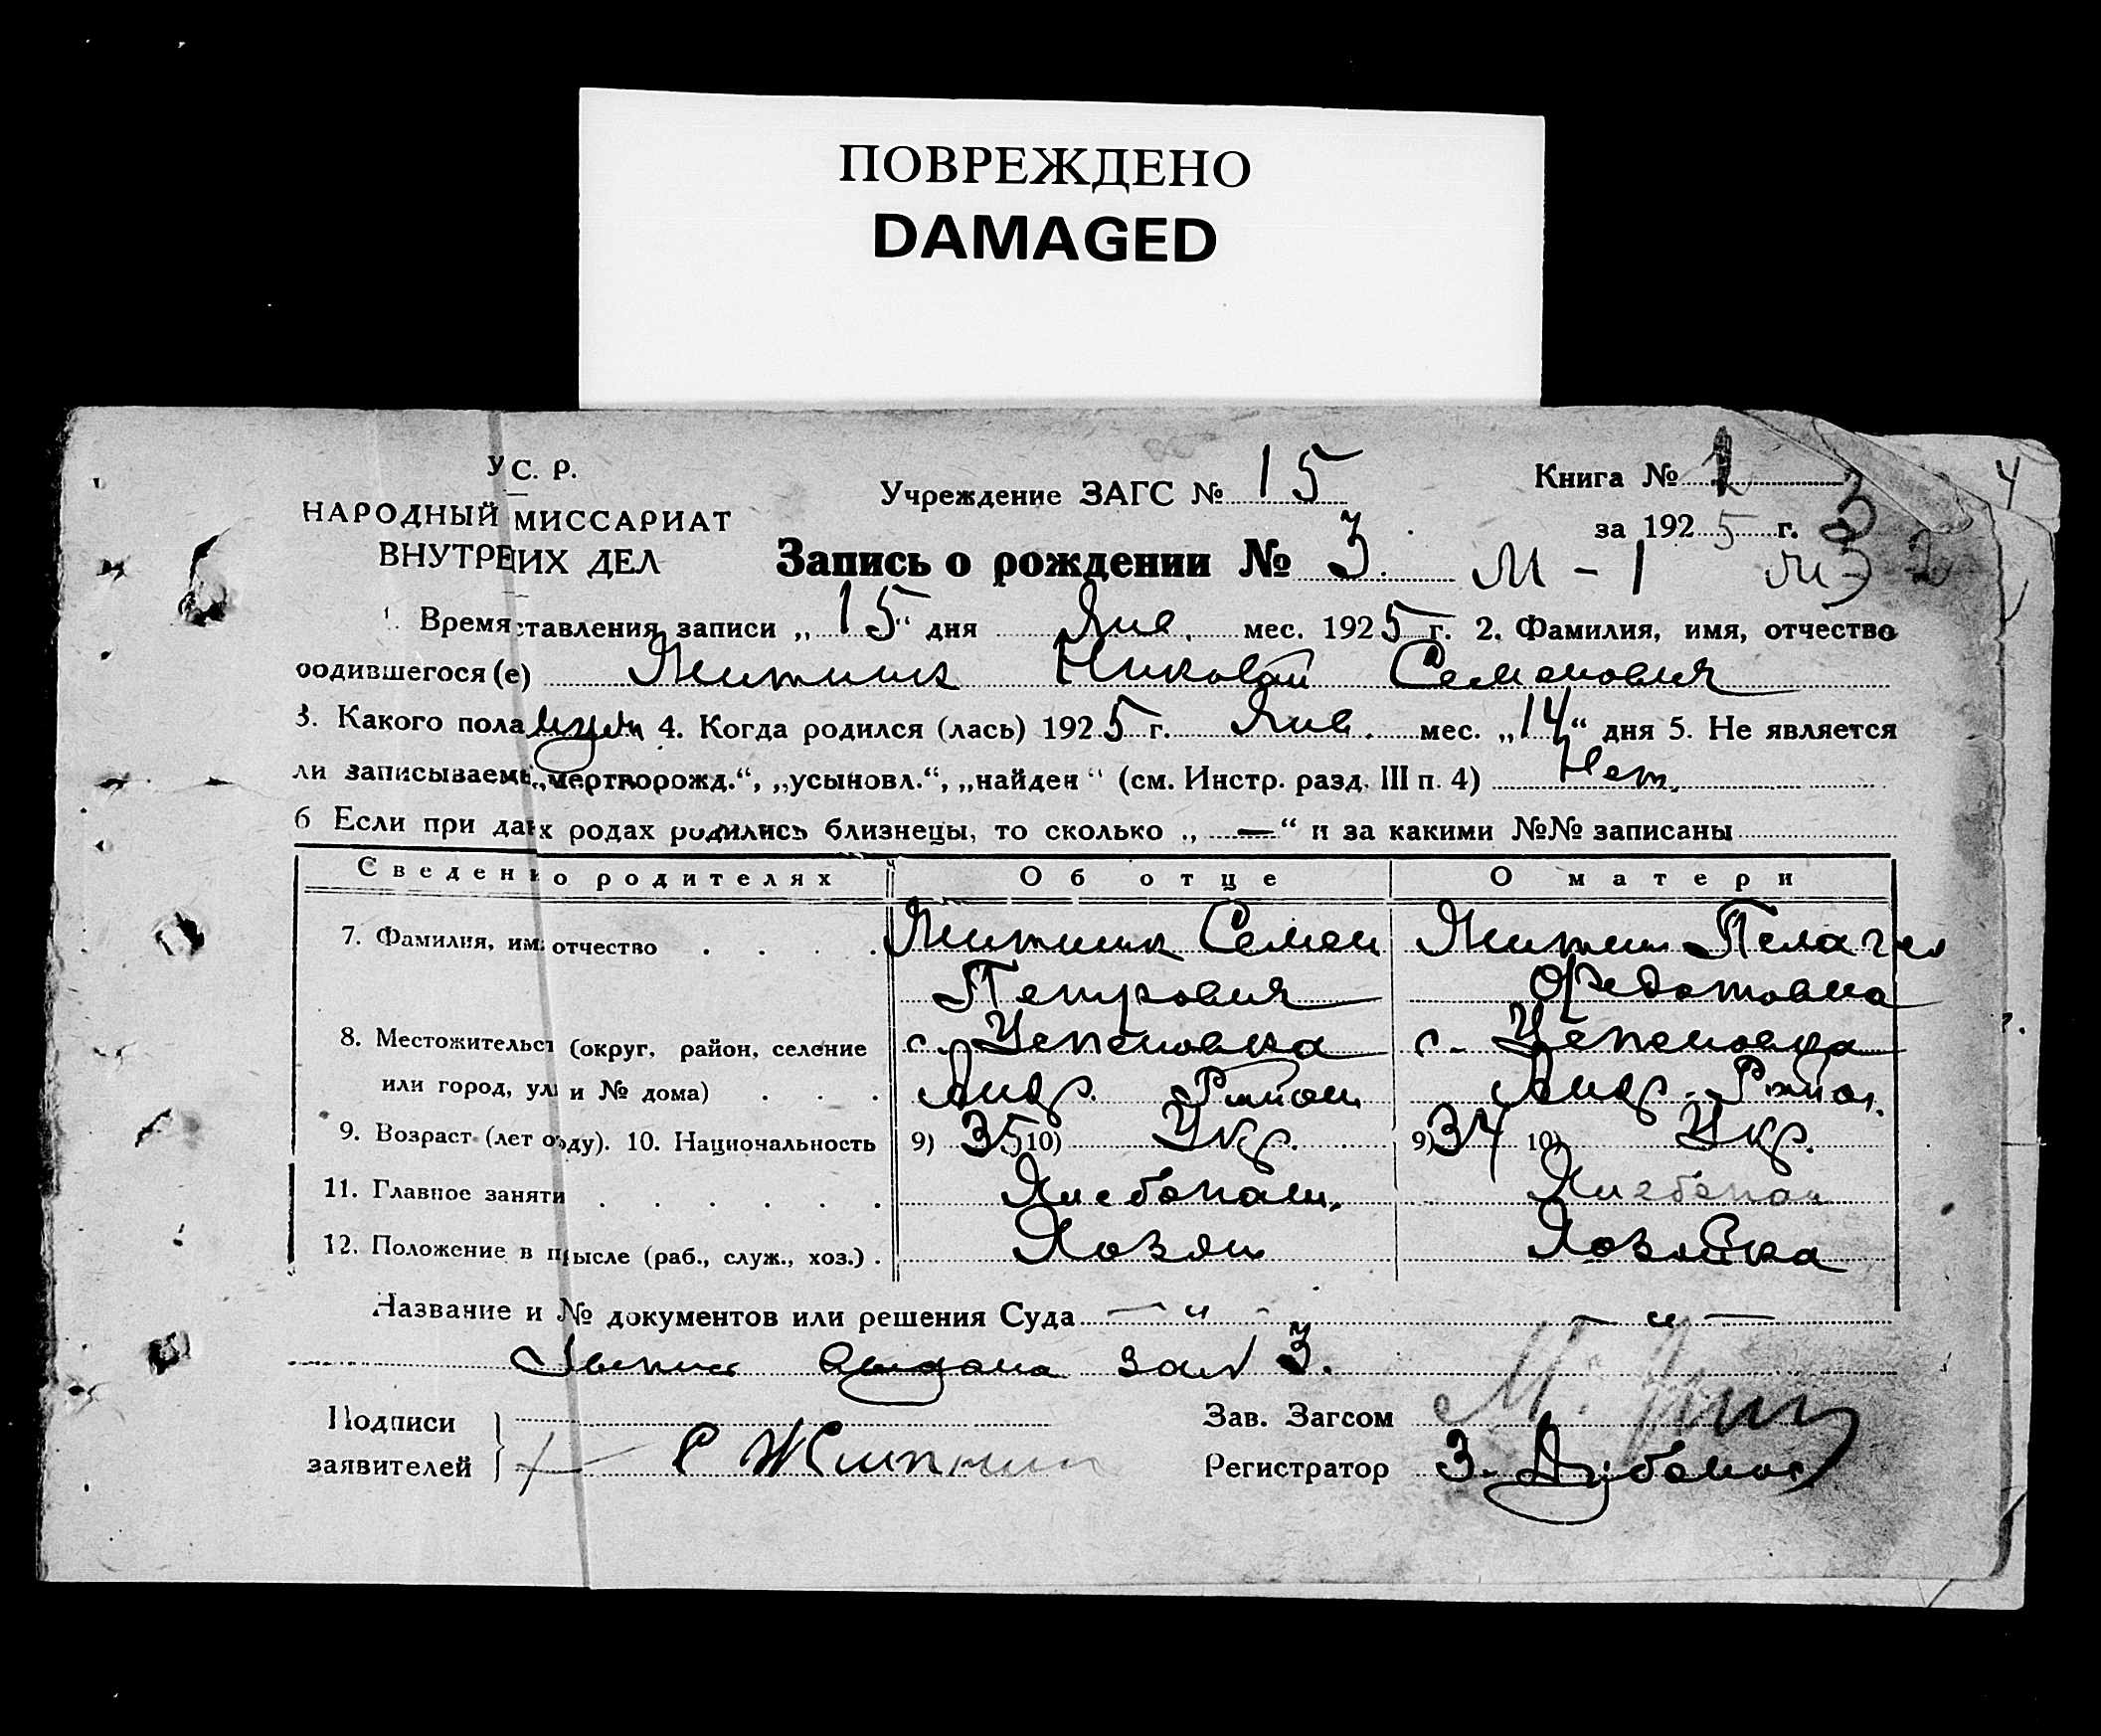 ПОВРЕЖДЕНО
DAMAGED
У С. Р.
НАРОДНЫЙ МИССАРИАТ
ВНУТРЕ ИХ ДЕЛ
Учреждение ЗАГС № 15
Книга №
за 1925 г. 3
4
Запись о рождении № 3. М - 1
Время ставления записи „15“ дня Янв. мес. 1925 г. 2. Фамилия, имя, отчество
родившегося (е) Житник Николай Семенович
3. Какого пола муж 4. Когда родился (лась) 1925 г. Янв. мес. „14“ дня 5. Не является
ли записываемы „мертворожд.“, „усыновл.“, „найден“ (см. Инстр. разд. III п. 4) Нет.
6 Если при да х родах родились близнецы, то сколько „—“ и за какими №№ записаны
Сведен о родителях Об отце О матери
7. Фамилия, им отчество Житник Семен Житник Пелагея
Петрович Федотовна
8. Местожительст (округ, район, селение с. Цепеновка с. Цепеновка
или город, ул и № дома) Андр. Район Андр. Район.
9. Возраст (лет о оду). 10. Национальность 9) 35 10) Укр. 9) 34 10) Укр.
11. Главное заняти Хлебопаш. Хлебопаш
12. Положение в п мысле (раб., служ., хоз.) Хозяин Хозяйка
Название и № документов или решения Суда — „ — — „ —
выдана за № 3.
Подписи
заявителей
С Житник
Зав. Загсом
Регистратор З.